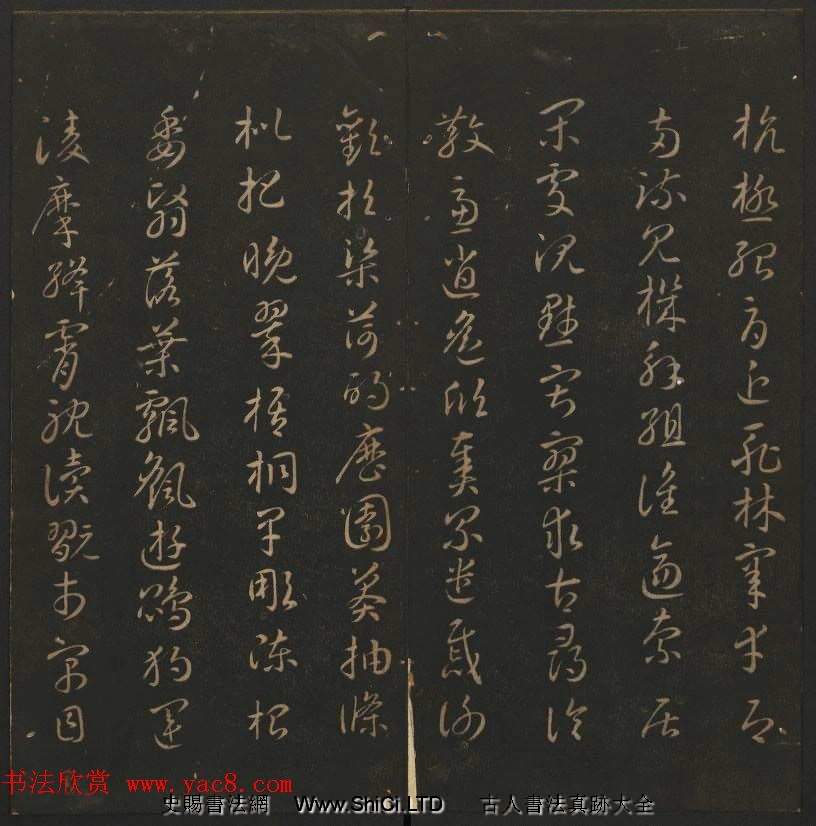 抗極殆辱近恥林睾幸即
兩疏見機解組誰逼索居
閑處沉默寂寥求古尋論
散慮逍遙欣奏累遣慼謝
歡招渠荷的歷園莽抽條
枇杷晚翠梧桐早彫陳根
委翳落葉飄颻遊鵾獨運
凌摩絳霄耽讀翫市寓目
书法欣赏 www.yac8.com
史賜書法網 Www.ShiCi.LTD 古人書法真跡大全